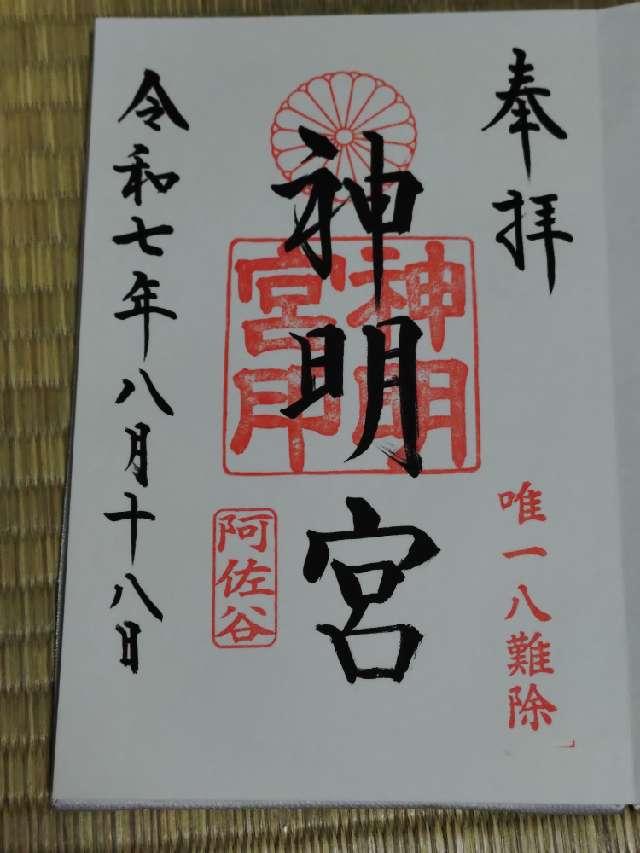 奉拝
唯一八難除
神明宮
神明宮印
阿佐谷
令和七年八月十八日